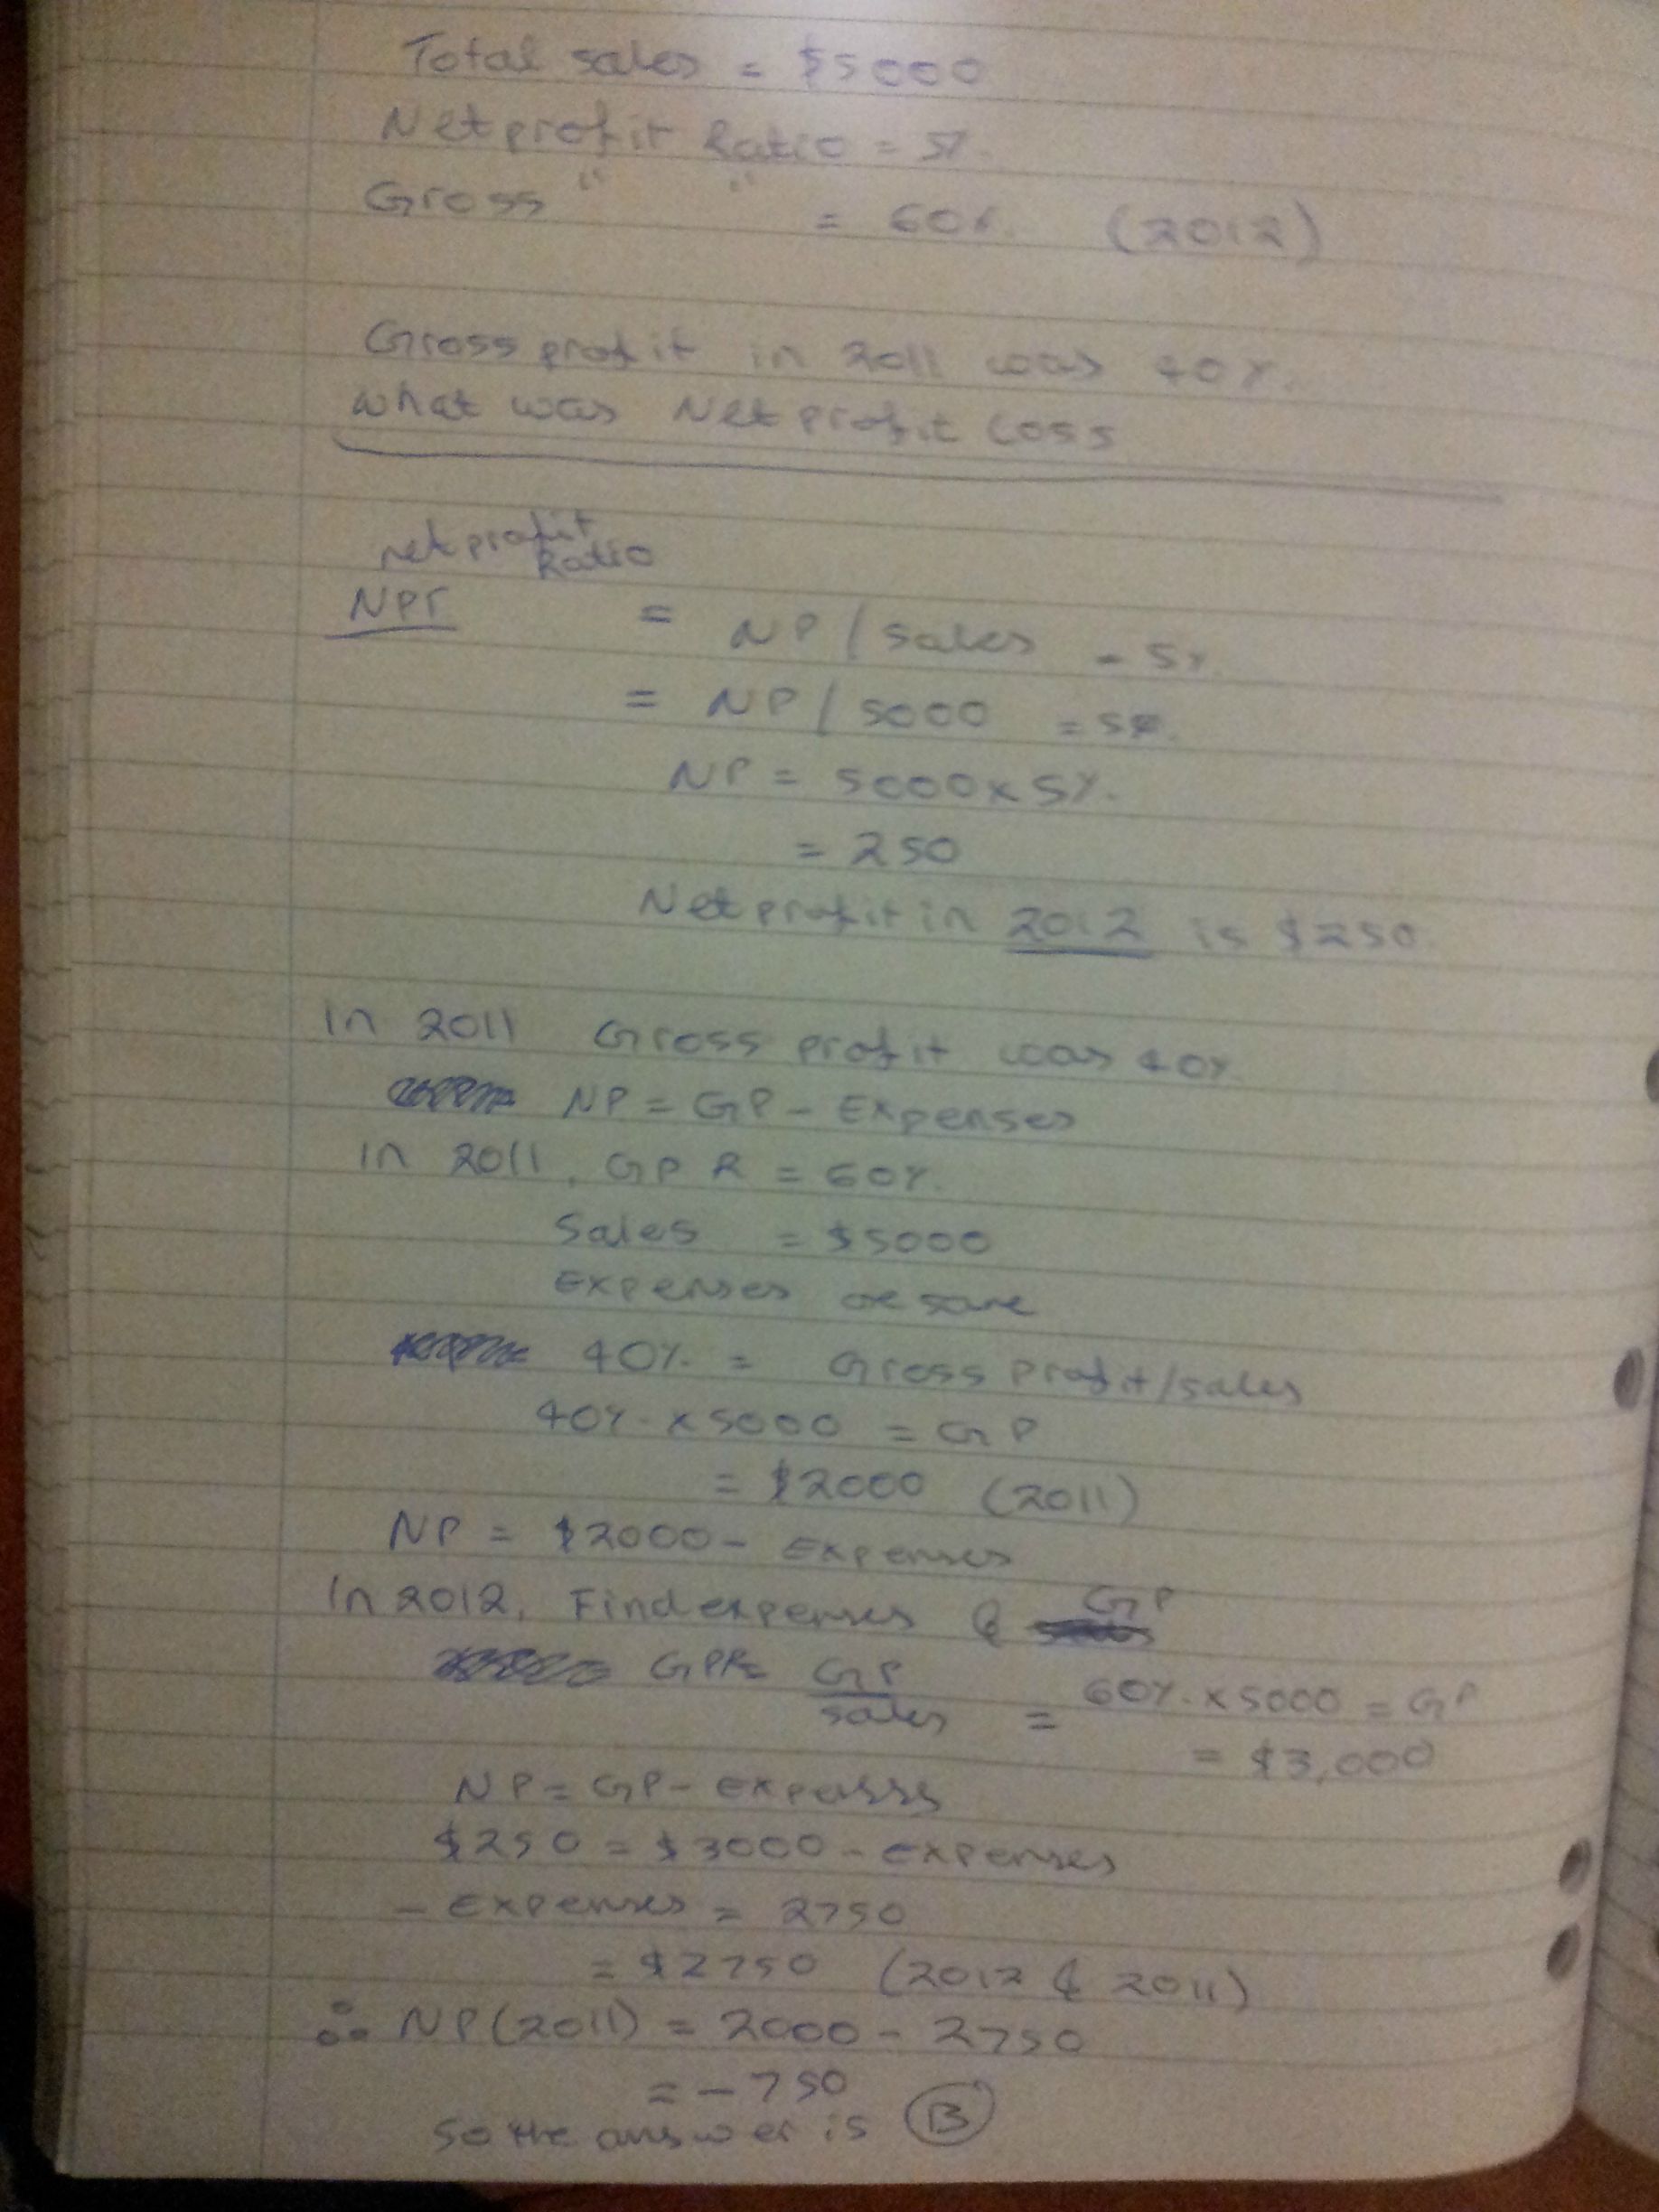 Total sales = $5000
Net profit Ratio = 5%.
Gross " " = 60%. (2012)
Gross profit in 2011 was 40%.
what was Net profit Loss
net profit
Ratio
NPr = NP / sales = 5%.
= NP / 5000 = 5%.
NP = 5000 x 5%.
= 250
Net profit in 2012 is $250.
In 2011 Gross profit was 40%
NP = GP - Expenses
In 2011, GP R = 60%.
Sales = $5000
Expenses are same
40%. = Gross Profit/sales
40%. x 5000 = GP
= $2000 (2011)
NP = $2000 - Expenses
In 2012, Find expenses & GP
GPR = GP / sales = 60%. x 5000 = GP
= $3,000
NP = GP - expenses
$250 = $3000 - expenses
- Expenses = 2750
= $2750 (2012 & 2011)
∴ NP (2011) = 2000 - 2750
= -750
So the answer is B